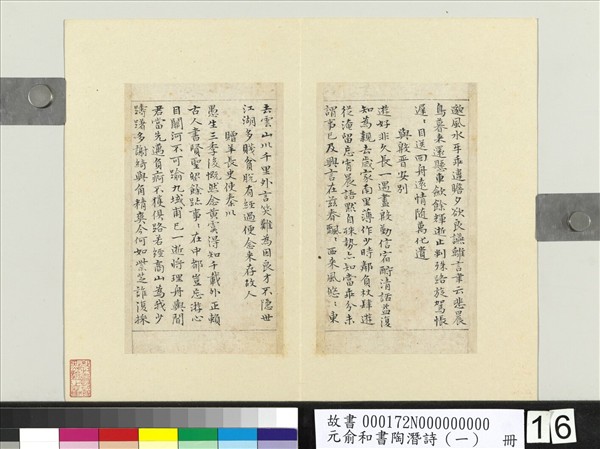 邈風水互乖違瞻夕欲良讌離言聿云悲晨
鳥暮來還懸車斂餘輝逝止判殊路旋駕悵
遲〻目送回舟遠情隨萬化遺
與殷晉安別
遊好非久長一遇盡殷勤信宿酬清話益復
知為親去歲家南里薄作少時鄰負杖肆遊
從淹留忘宵晨語默自殊勢亦知當乖分未
謂事已及興言在茲春飄〻西來風悠〻東
去雲山川千里外言笑難為因良才不隱世
江湖多賤貧脫有經過便念來存故人
贈羊長史使秦川
愚生三季後慨然念黃虞得知千載外正賴
古人書賢聖留餘跡事〻在中都豈忘游心
目關河不可踰九域甫已一逝將理舟輿聞
君當先邁負痾不獲俱路若經商山為我少
躊躇多謝綺與甪精爽今何如紫芝誰復採
故書000172N000000000
元俞和書陶潛詩(一) 冊
16